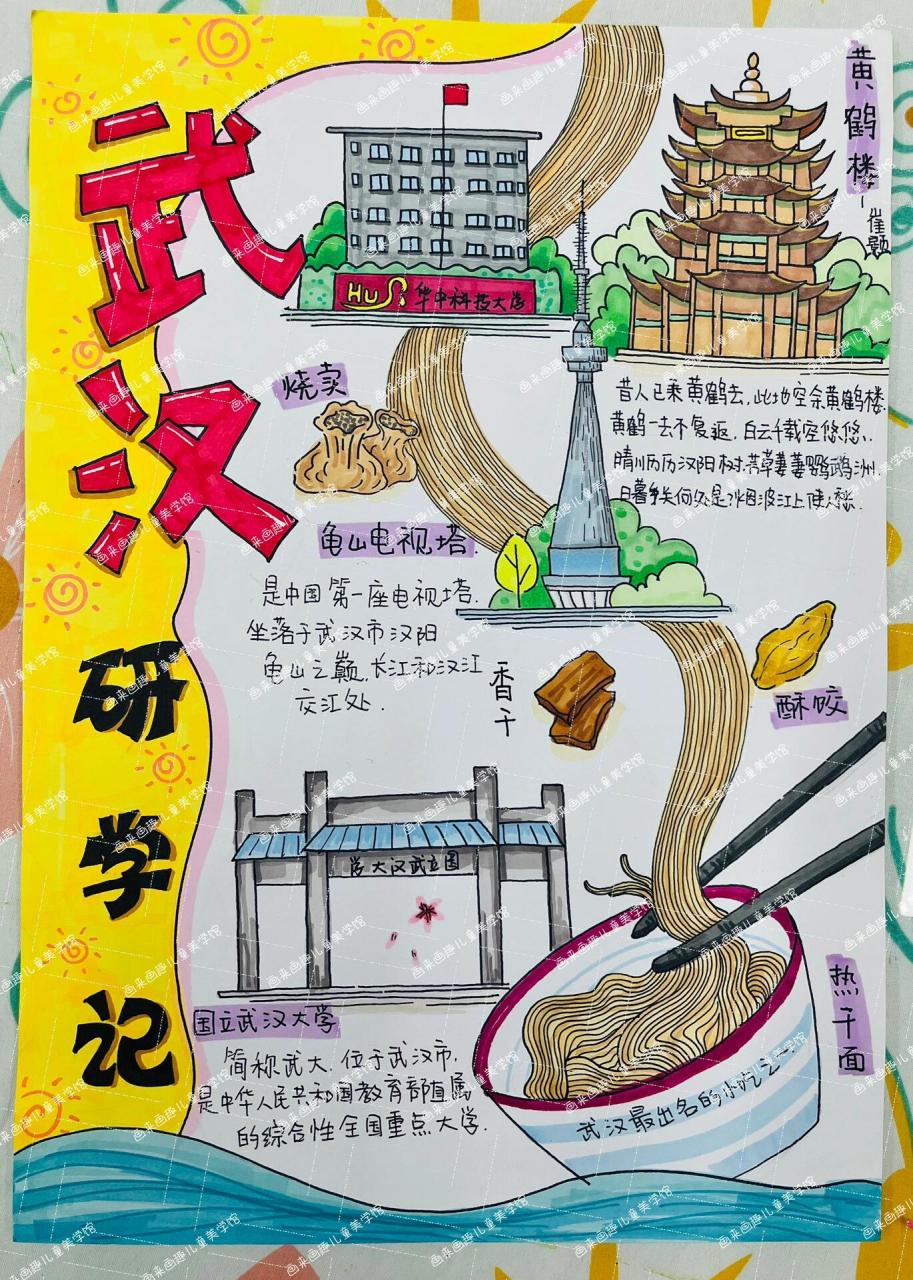 武汉
研学记
HUST 华中科技大学
黄鹤楼
-崔颢
昔人已乘黄鹤去,此地空余黄鹤楼
黄鹤一去不复返,白云千载空悠悠.
晴川历历汉阳树.芳草萋萋鹦鹉洲.
日暮乡关何处是?烟波江上使人愁.
烧卖
龟山电视塔
是中国第一座电视塔.
坐落于武汉市汉阳
龟山之巅,长江和汉江
交汇处.
香干
酥饺
学大汉武立国
国立武汉大学
简称武大.位于武汉市,
是中华人民共和国教育部直属
的综合性全国重点大学.
热干面
武汉最出名的小吃之一.
画来画趣儿童美学馆